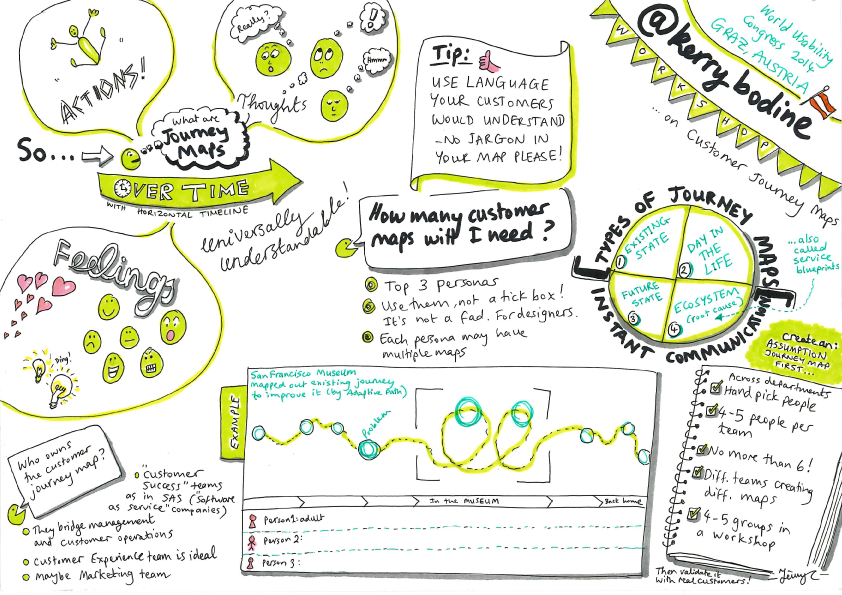 "ACTIONS!"
Really?
!!
Hmmm
Thoughts
So...
What are
JOURNEY
MAPS
OVER TIME
WITH HORIZONTAL TIMELINE
universally
understandable!
Feelings
Ding!
Tip:
USE LANGUAGE
YOUR CUSTOMERS
WOULD UNDERSTAND
- NO JARGON IN
YOUR MAP PLEASE!
@kerry bodine
World Usability
Congress 2014
GRAZ, AUSTRIA
WORKSHOP
... on Customer Journey Maps
How many customer
maps will I need?
Top 3 Personas
Use them, not a tick box!
It's not a fad. For designers.
Each persona may have
multiple maps
TYPES OF JOURNEY MAPS
INSTANT COMMUNICATION
EXISTING
STATE
1
DAY IN
THE
LIFE
2
FUTURE
STATE
3
ECOSYSTEM
(root cause)
4
...also
called
service
blueprints
Create an:
ASSUMPTION
JOURNEY MAP
FIRST...
Across departments
Hand pick people
4-5 people per
team
No more than 6!
Diff. teams creating
diff. maps
4-5 groups in
a workshop
Then validate it
with real customers!
EXAMPLE
San Francisco Museum
mapped out existing journey
to improve it (by Adaptive Path)
Problem
In the MUSEUM
Back home
Person 1: adult
Person 2:
Person 3:
Who owns
the customer
journey map?
"Customer
Success" teams
as in SAS ("Software
as service" companies)
They bridge management
and customer operations
Customer Experience team is ideal
Maybe Marketing team